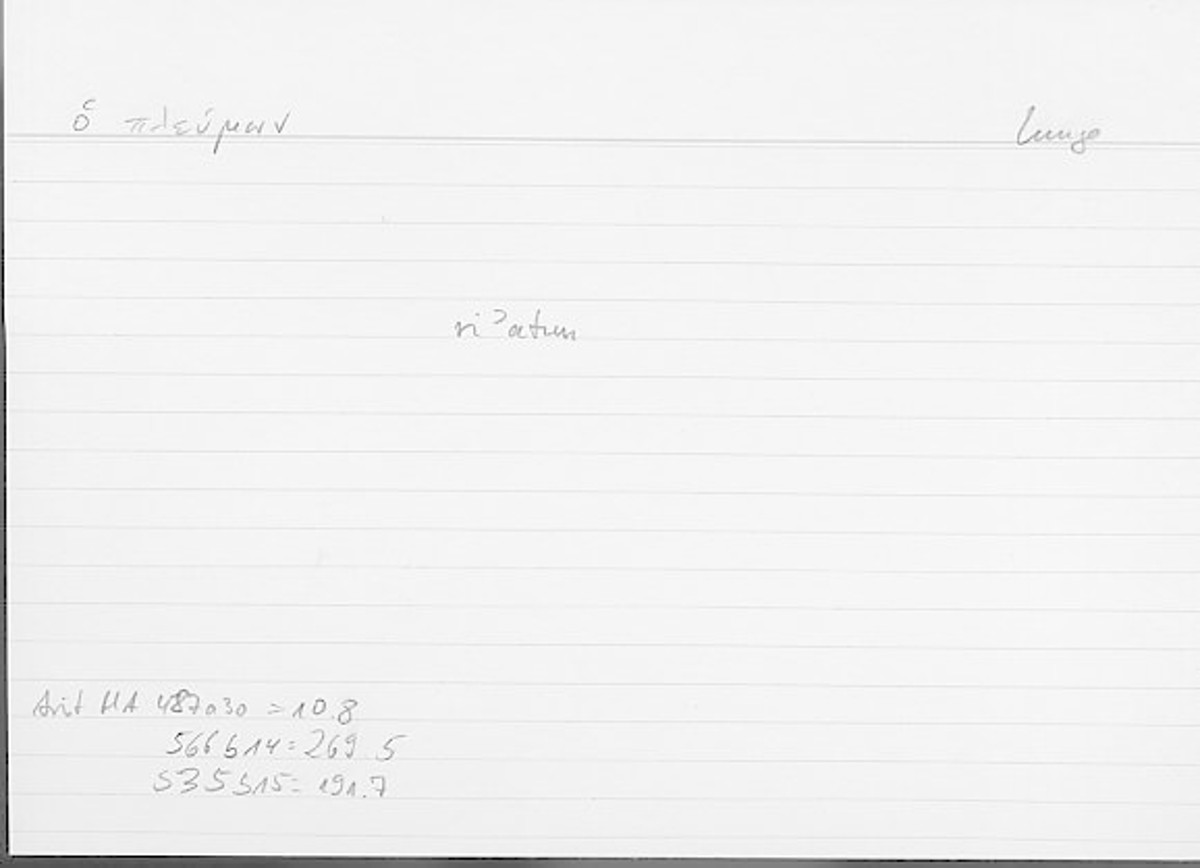 ὁ πλεύμων Lunge
riʾatun
Arist HA 487a30 = 10.8
566b14 = 269.5
535b15 = 191.7